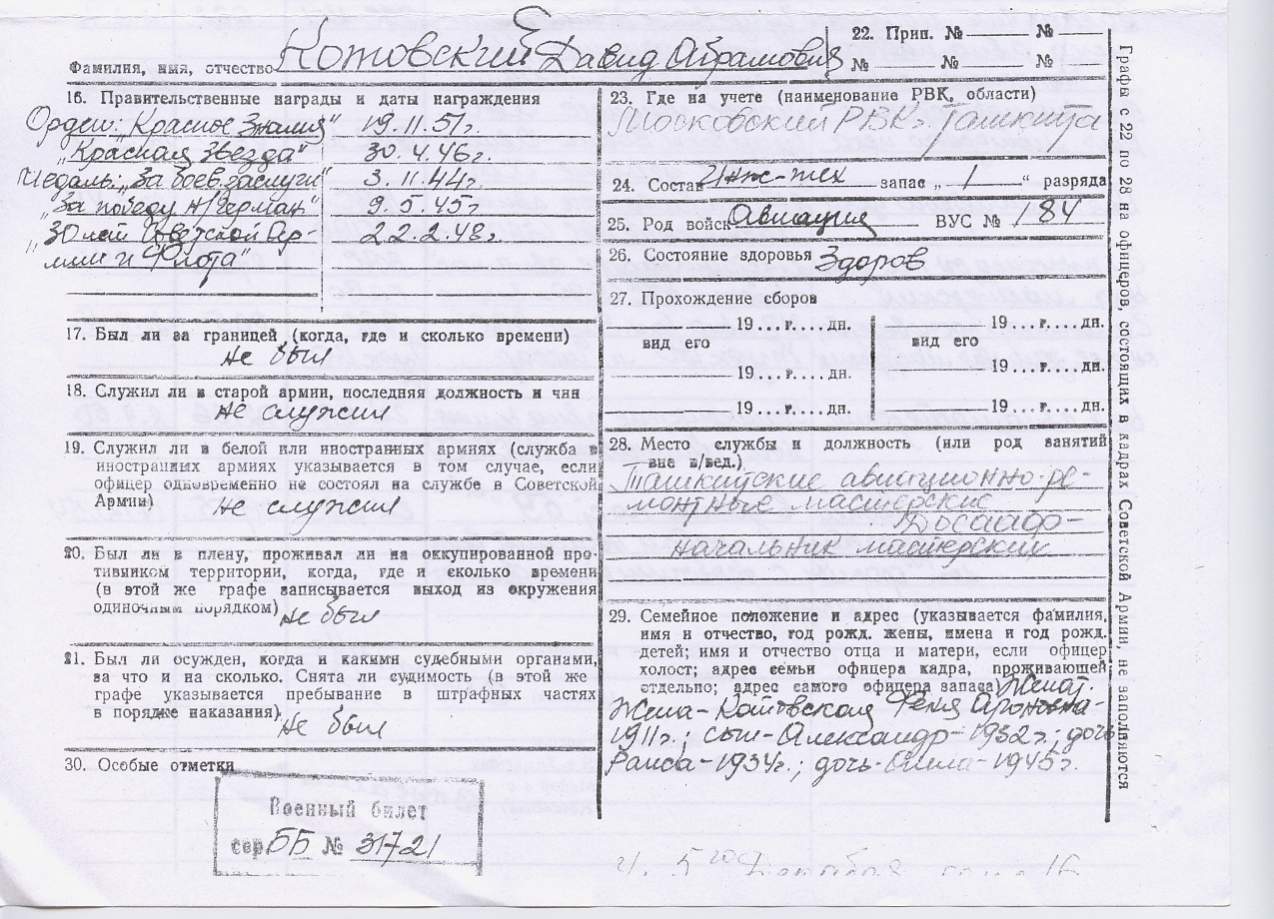 Фамилия, имя, отчество Котовский Давид Абрамович
22. Прип. № № 
№ № №
16. Правительственные награды и даты награждения
Орден: „Красное Знамя" 19.11.51г.
„Красная Звезда" 30.4.46г.
Медаль: „За боев. заслуги" 3.11.44г.
„За победу н/Герман" 9.5.45г.
„30 лет Советской Ар- 22.2.48г.
мии и Флота"
17. Был ли за границей (когда, где и сколько времени)
Не был
18. Служил ли в старой армии, последняя должность и чин
Не служил
19. Служил ли в белой или иностранных армиях (служба в
иностранных армиях указывается в том случае, если
офицер одновременно не состоял на службе в Советской
Армии) Не служил
20. Был ли в плену, проживал ли на оккупированной про-
тивником территории, когда, где и сколько времени
(в этой же графе записывается выход из окружения
одиночным порядком) Не был
21. Был ли осужден, когда и какими судебными органами,
за что и на сколько. Снята ли судимость (в этой же
графе указывается пребывание в штрафных частях
в порядке наказания) Не был
30. Особые отметки
Военный билет
сер. ББ № 31721
23. Где на учете (наименование РВК, области)
Московский РВК г. Ташкента
24. Состав Инж-тех запас „ 1 " разряда
25. Род войск Авиация ВУС № 184
26. Состояние здоровья Здоров
27. Прохождение сборов
19...г....дн. 19...г....дн.
вид его вид его
19...г....дн. 19...г....дн.
19...г....дн. 19...г....дн.
28. Место службы и должность (или род занятий
вне в/вед.)
Ташкентские авиационно-ре-
монтные мастерские
Досааф-
начальник мастерских
29. Семейное положение и адрес (указывается фамилия,
имя и отчество, год рожд. жены, имена и год рожд.
детей; имя и отчество отца и матери, если офицер
холост; адрес семьи офицера кадра, проживающей
отдельно; адрес самого офицера запаса) Женат.
Жена-Котовская Феня Ароновна-
1911г.; сын-Александр-1932г.; дочь
Раиса-1934г.; дочь-Алла-1945г.
Графы с 22 по 28 на офицеров, состоящих в кадрах Советской Армии, не заполняются